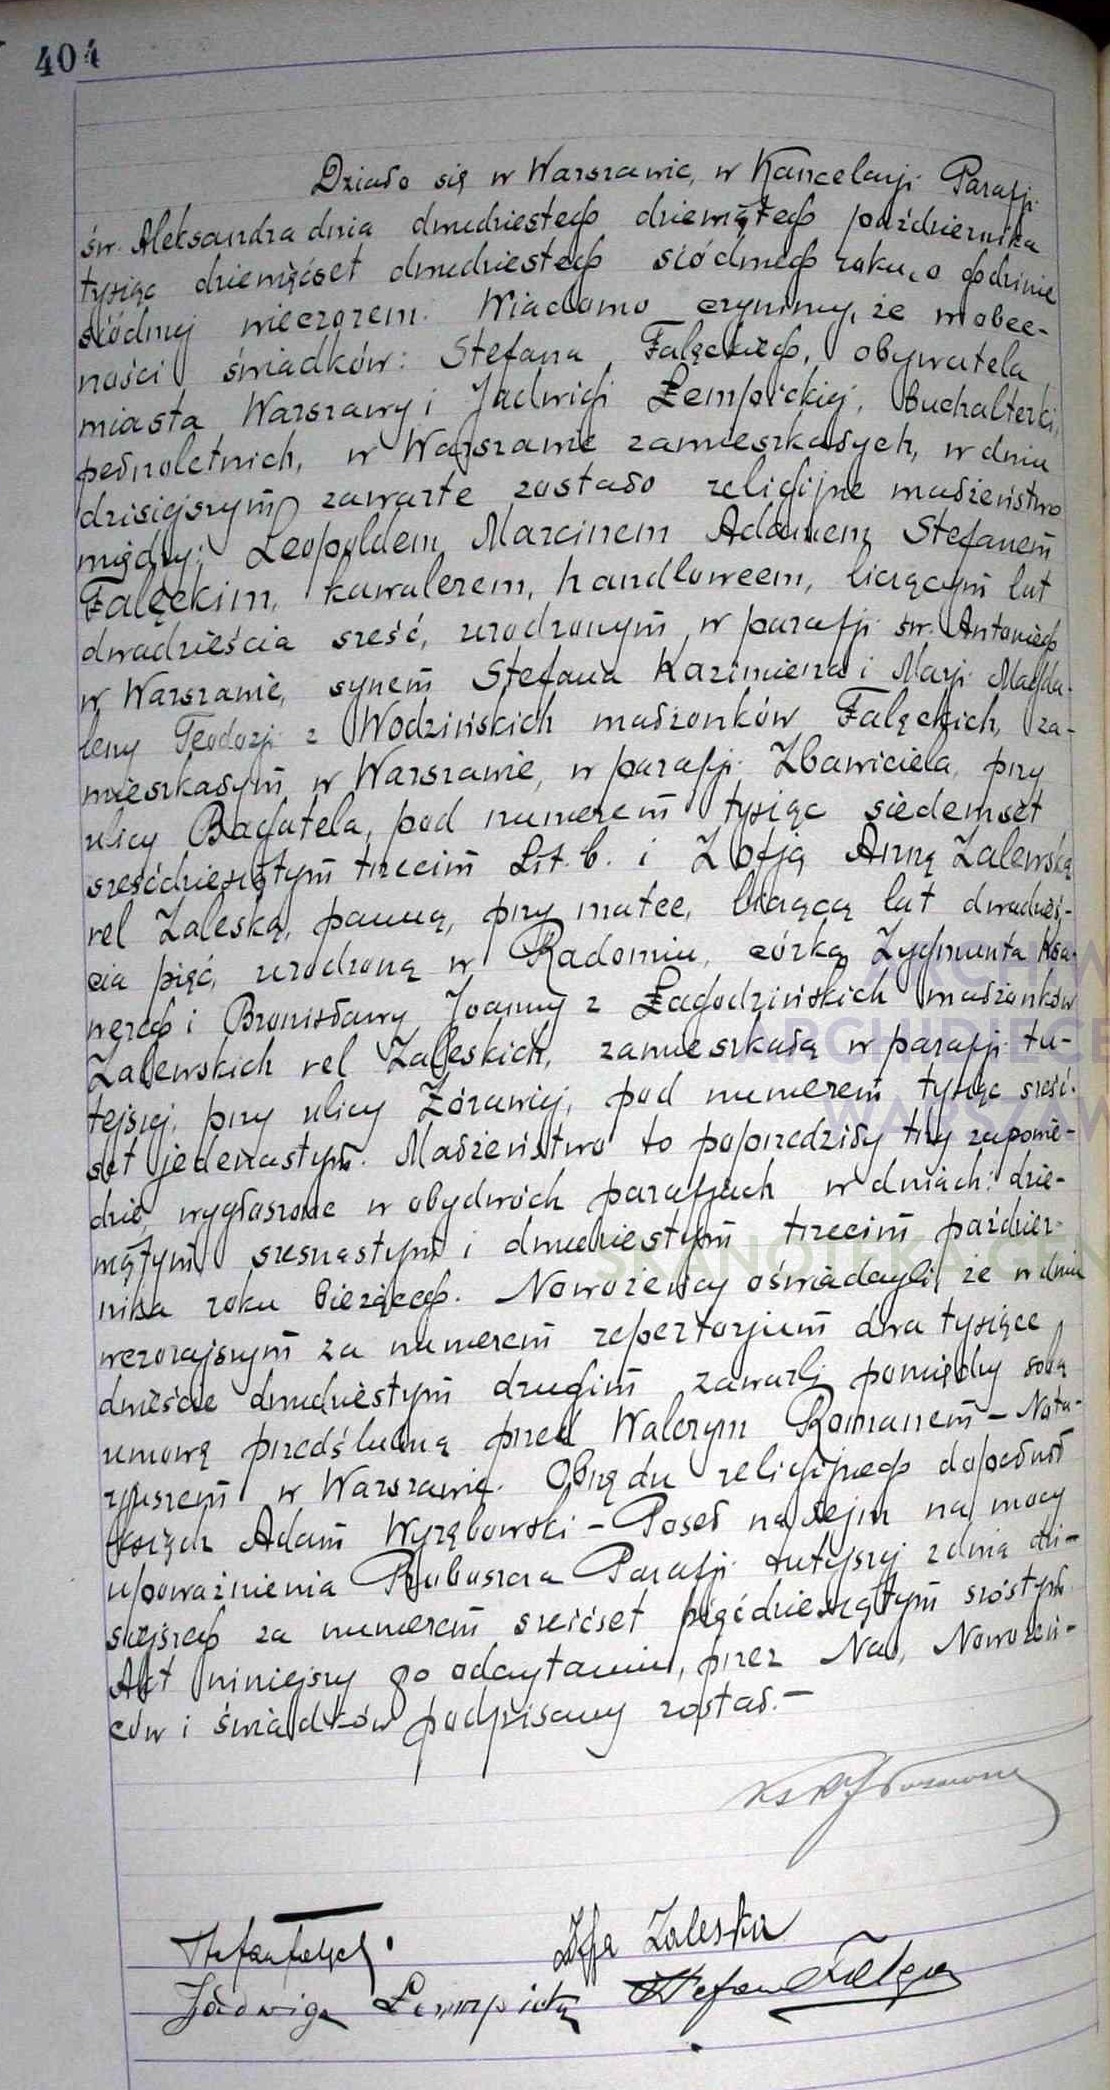 404
Działo się w Warszawie, w Kancelarji Parafji
św. Aleksandra dnia dwudziestego dziewiątego października
tysiąc dziewięćset dwudziestego siódmego roku, o godzinie
siódmej wieczorem. Wiadomo czynimy, że w obec-
ności świadków: Stefana Fałęckiego, obywatela
miasta Warszawy i Jadwigi Łempickiej, Buchalterki,
pełnoletnich, w Warszawie zamieszkałych, w dniu
dzisiejszym zawarte zostało religijne małżeństwo
między: Leopoldem Marcinem Adamem Stefanem
Fałęckim, kawalerem, handlowcem, liczącym lat
dwadzieścia sześć, urodzonym w parafji św. Antoniego
w Warszawie, synem Stefana Kazimierza i Marji Magda-
leny Teodozji z Wodzińskich małżonków Fałęckich, za-
mieszkałym w Warszawie, w parafji Zbawiciela, przy
ulicy Bagatela, pod numerem tysiąc siedemset
sześćdziesiątym trzecim Lit. b. i Zofją Anną Zalewską
vel Zaleską, panną, przy matce, liczącą lat dwadzieś-
cia pięć, urodzoną w Radomiu, córką Zygmunta Ksa-
werego i Bronisławy Joanny z Łagodzińskich małżonków
Zalewskich vel Zaleskich, zamieszkałą w parafji tu-
tejszej, przy ulicy Żórawiej, pod numerem tysiąc sześć-
set jedenastym. Małżeństwo to poprzedziły trzy zapowie-
dzie, wygłoszone w obydwóch parafjach w dniach: dzie-
wiątym szesnastym i dwudziestym trzecim paździer-
nika roku bieżącego. Nowożeńcy oświadczyli, że w dniu
wczorajszym za numerem repertorjum dwa tysiące
dwieście dwudziestym drugim zawarli pomiędzy sobą
umowę przedślubną przed Walerym Romanem – Nota-
rjuszem w Warszawie. Obrzędu religijnego dopełnił
Ksiądz Adam Wyrębowski – Poseł na Sejm na mocy
upoważnienia Proboszcza Parafji tutejszej z dnia dzi-
siejszego za numerem sześćset pięćdziesiątym szóstym.
Akt niniejszy po odczytaniu, przez Nas, Nowożeń-
ców i świadków podpisany został. –
Zofja Zaleska
Jadwiga Łempicka
ARCHIW
ARCHIDIECE
WARSZAW
SKANOTEKA.GEN